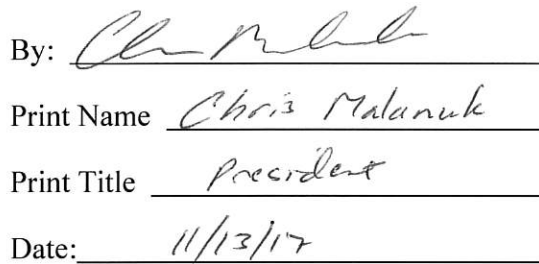 By:
Print Name Chris Malanuk
Print Title President
Date: 11/13/17